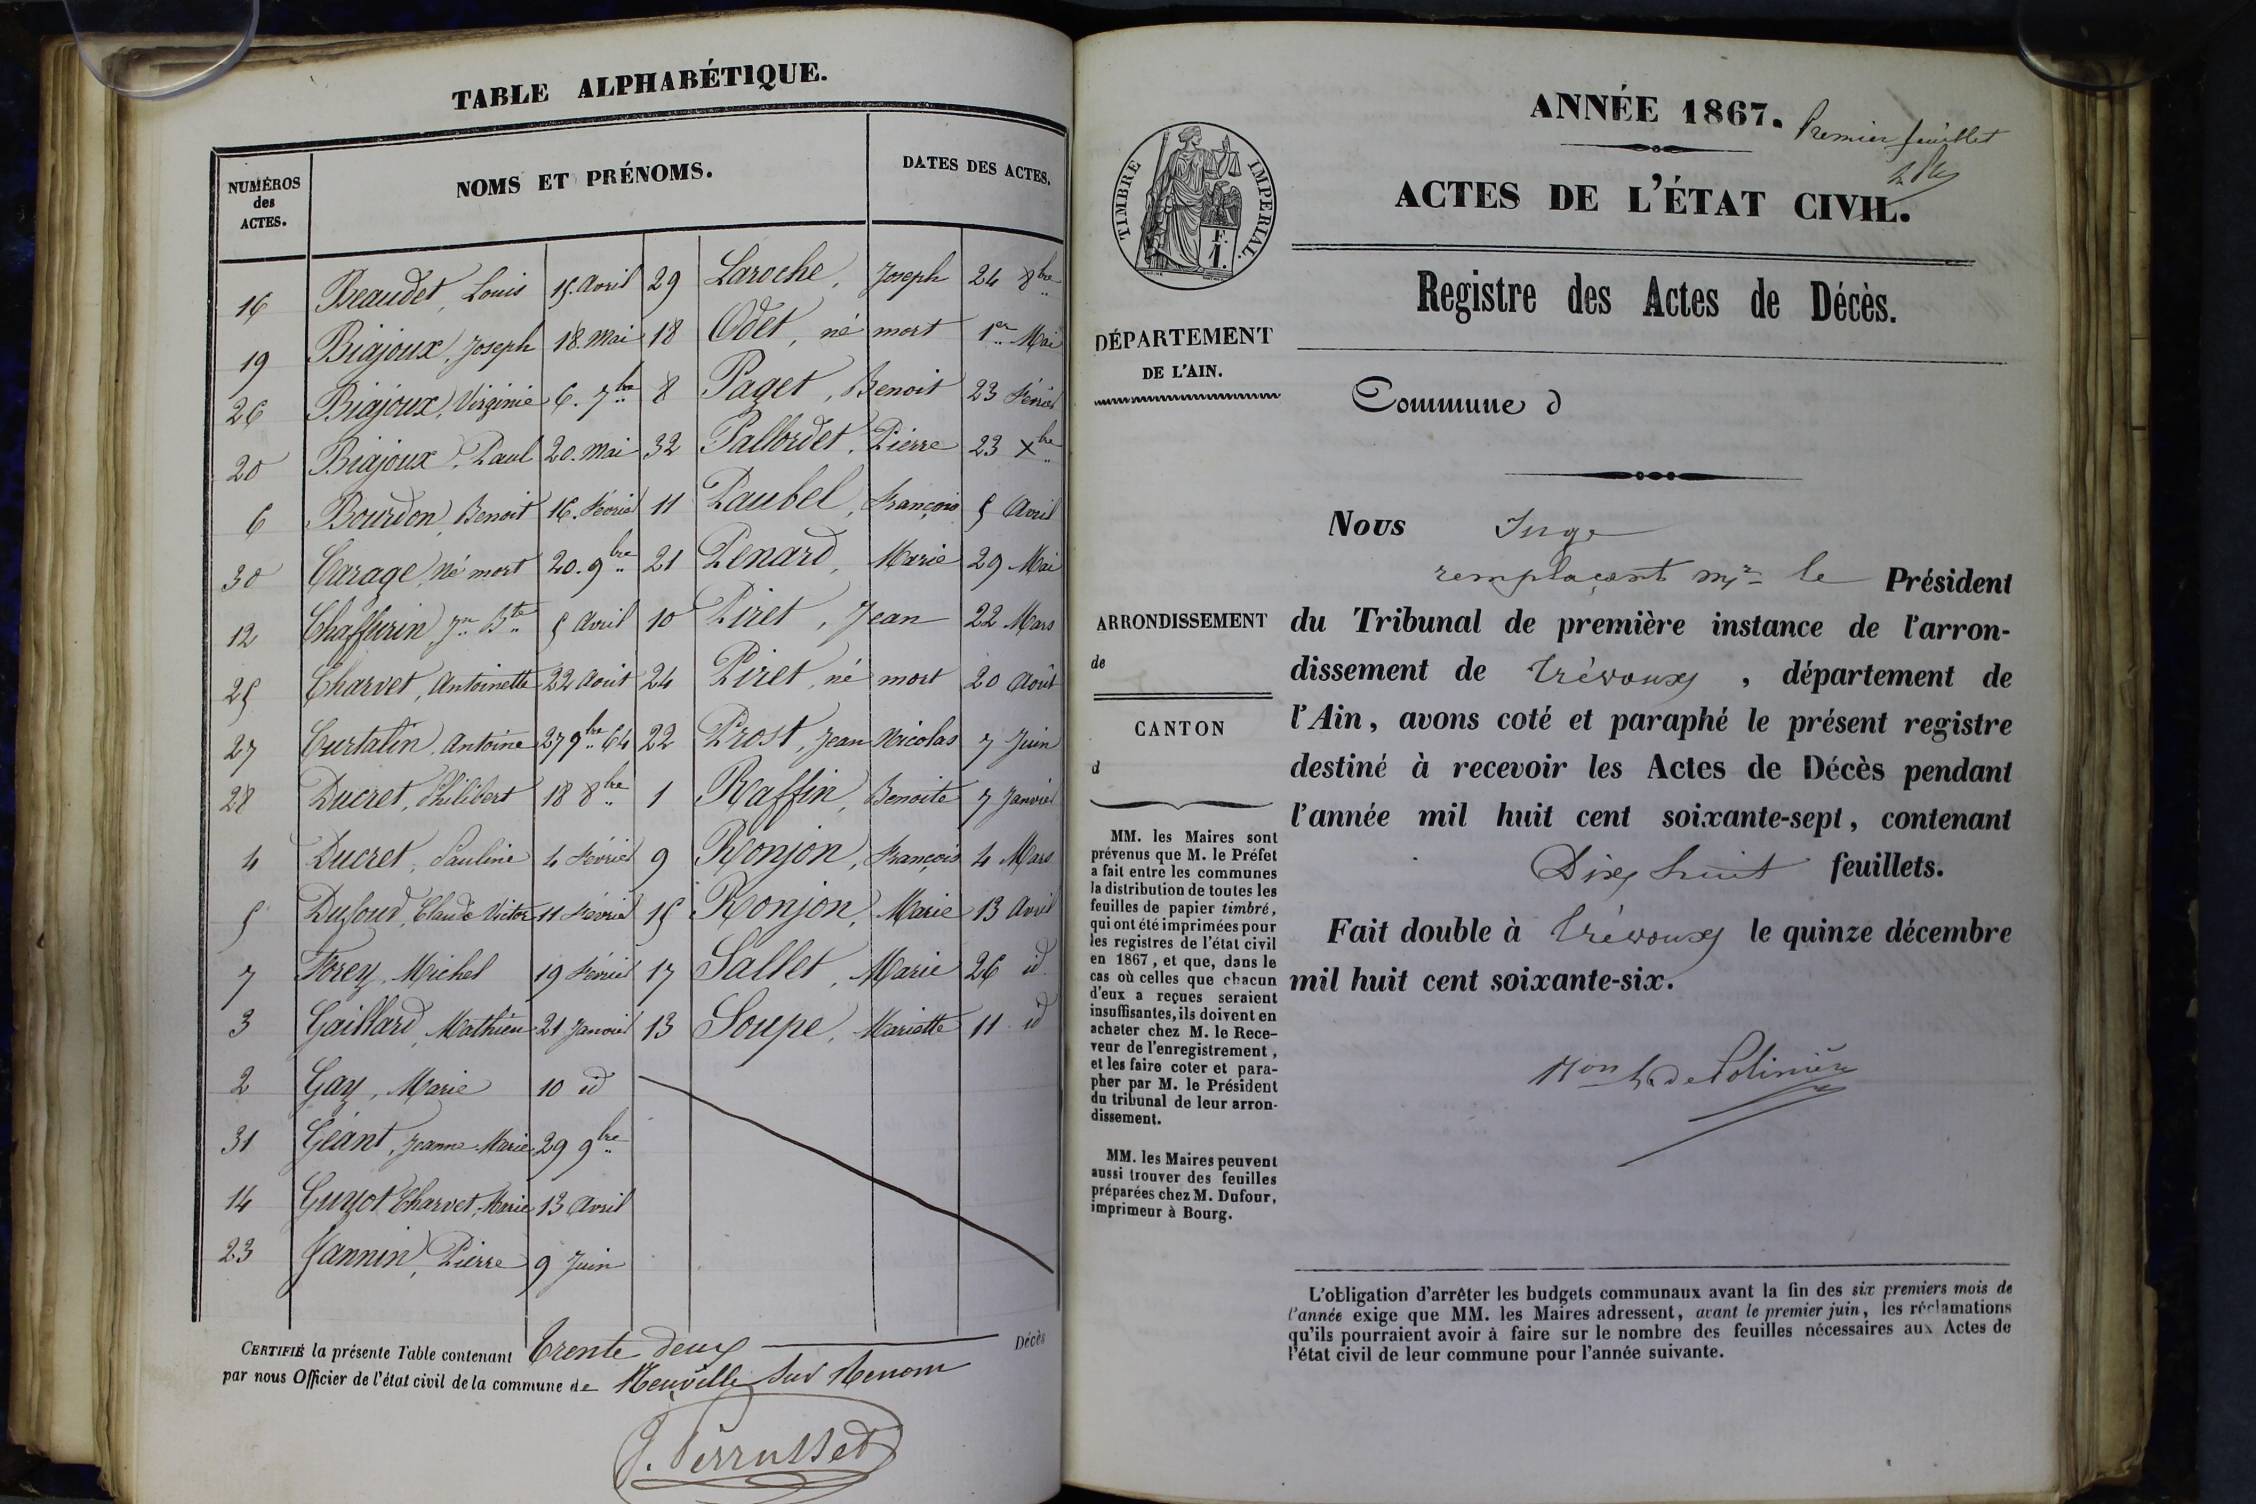 TABLE ALPHABÉTIQUE.
NUMÉROS des ACTES. NOMS ET PRÉNOMS. DATES DES ACTES.
16 Beaudet, Louis 15. Avril 29 Laroche, Joseph 24 8bre
19 Biajoux, Joseph 18. Mai 18 Odet, né mort 1er Mai
26 Biajoux, Virginie 6. 7bre 8 Paget, Benoit 23 Février
20 Biajoux, Paul 20. Mai 32 Pallordet, Pierre 23 Xbre
6 Bourdon, Benoit 16. Février 11 Paubel, François 5 Avril
30 Carage, né mort 20. 9bre 21 Penard, Marie 29 Mai
12 Chaffurin Jn Bte 5 Avril 10 Piret, Jean 22 Mars
25 Charvet, Antoinette 22 Aout 24 Piret, né mort 20 Août
27 Curtalin, Antoine 27 9bre 64 22 Prost, Jean Nicolas 7 Juin
28 Ducret, Philibert 18 8bre 1 Raffin, Benoite 7 Janvier
4 Ducret, Pauline 4 Février 9 Ronjon, François 4 Mars
5 Dufour, Claude Victor 11 Février 15 Ronjon, Marie 13 Avril
7 Forey, Michel 19 Février 17 Sallet, Marie 26 id
3 Gaillard, Mathieu 21 Janvier 13 Soupe, Mariette 11 id
2 Gay, Marie 10 id
31 Géant, Jeanne Marie 29 9bre
14 Guyot Charvet, Marie 13 Avril
23 Jannin, Pierre 9 Juin
CERTIFIÉ la présente Table contenant Trente deux Décès
par nous Officier de l'état civil de la commune de Neuville sur Renom
J. Perrusset
ANNÉE 1867.
Premier feuillet
TIMBRE IMPERIAL.
F.
1.
ACTES DE L'ÉTAT CIVIL.
Registre des Actes de Décès.
DÉPARTEMENT
DE L'AIN.
Commune d
ARRONDISSEMENT
de
CANTON
d
MM. les Maires sont
prévenus que M. le Préfet
a fait entre les communes
la distribution de toutes les
feuilles de papier timbré,
qui ont été imprimées pour
les registres de l'état civil
en 1867, et que, dans le
cas où celles que chacun
d'eux a reçues seraient
insuffisantes, ils doivent en
acheter chez M. le Rece-
veur de l'enregistrement,
et les faire coter et para-
pher par M. le Président
du tribunal de leur arron-
dissement.
MM. les Maires peuvent
aussi trouver des feuilles
préparées chez M. Dufour,
imprimeur à Bourg.
Nous Juge
remplaçant Mr le Président
du Tribunal de première instance de l'arron-
dissement de Trévoux, département de
l'Ain, avons coté et paraphé le présent registre
destiné à recevoir les Actes de Décès pendant
l'année mil huit cent soixante-sept, contenant
Dix huit feuillets.
Fait double à Trévoux le quinze décembre
mil huit cent soixante-six.
de Polinière
L'obligation d'arrêter les budgets communaux avant la fin des six premiers mois de
l'année exige que MM. les Maires adressent, avant le premier juin, les réclamations
qu'ils pourraient avoir à faire sur le nombre des feuilles nécessaires aux Actes de
l'état civil de leur commune pour l'année suivante.